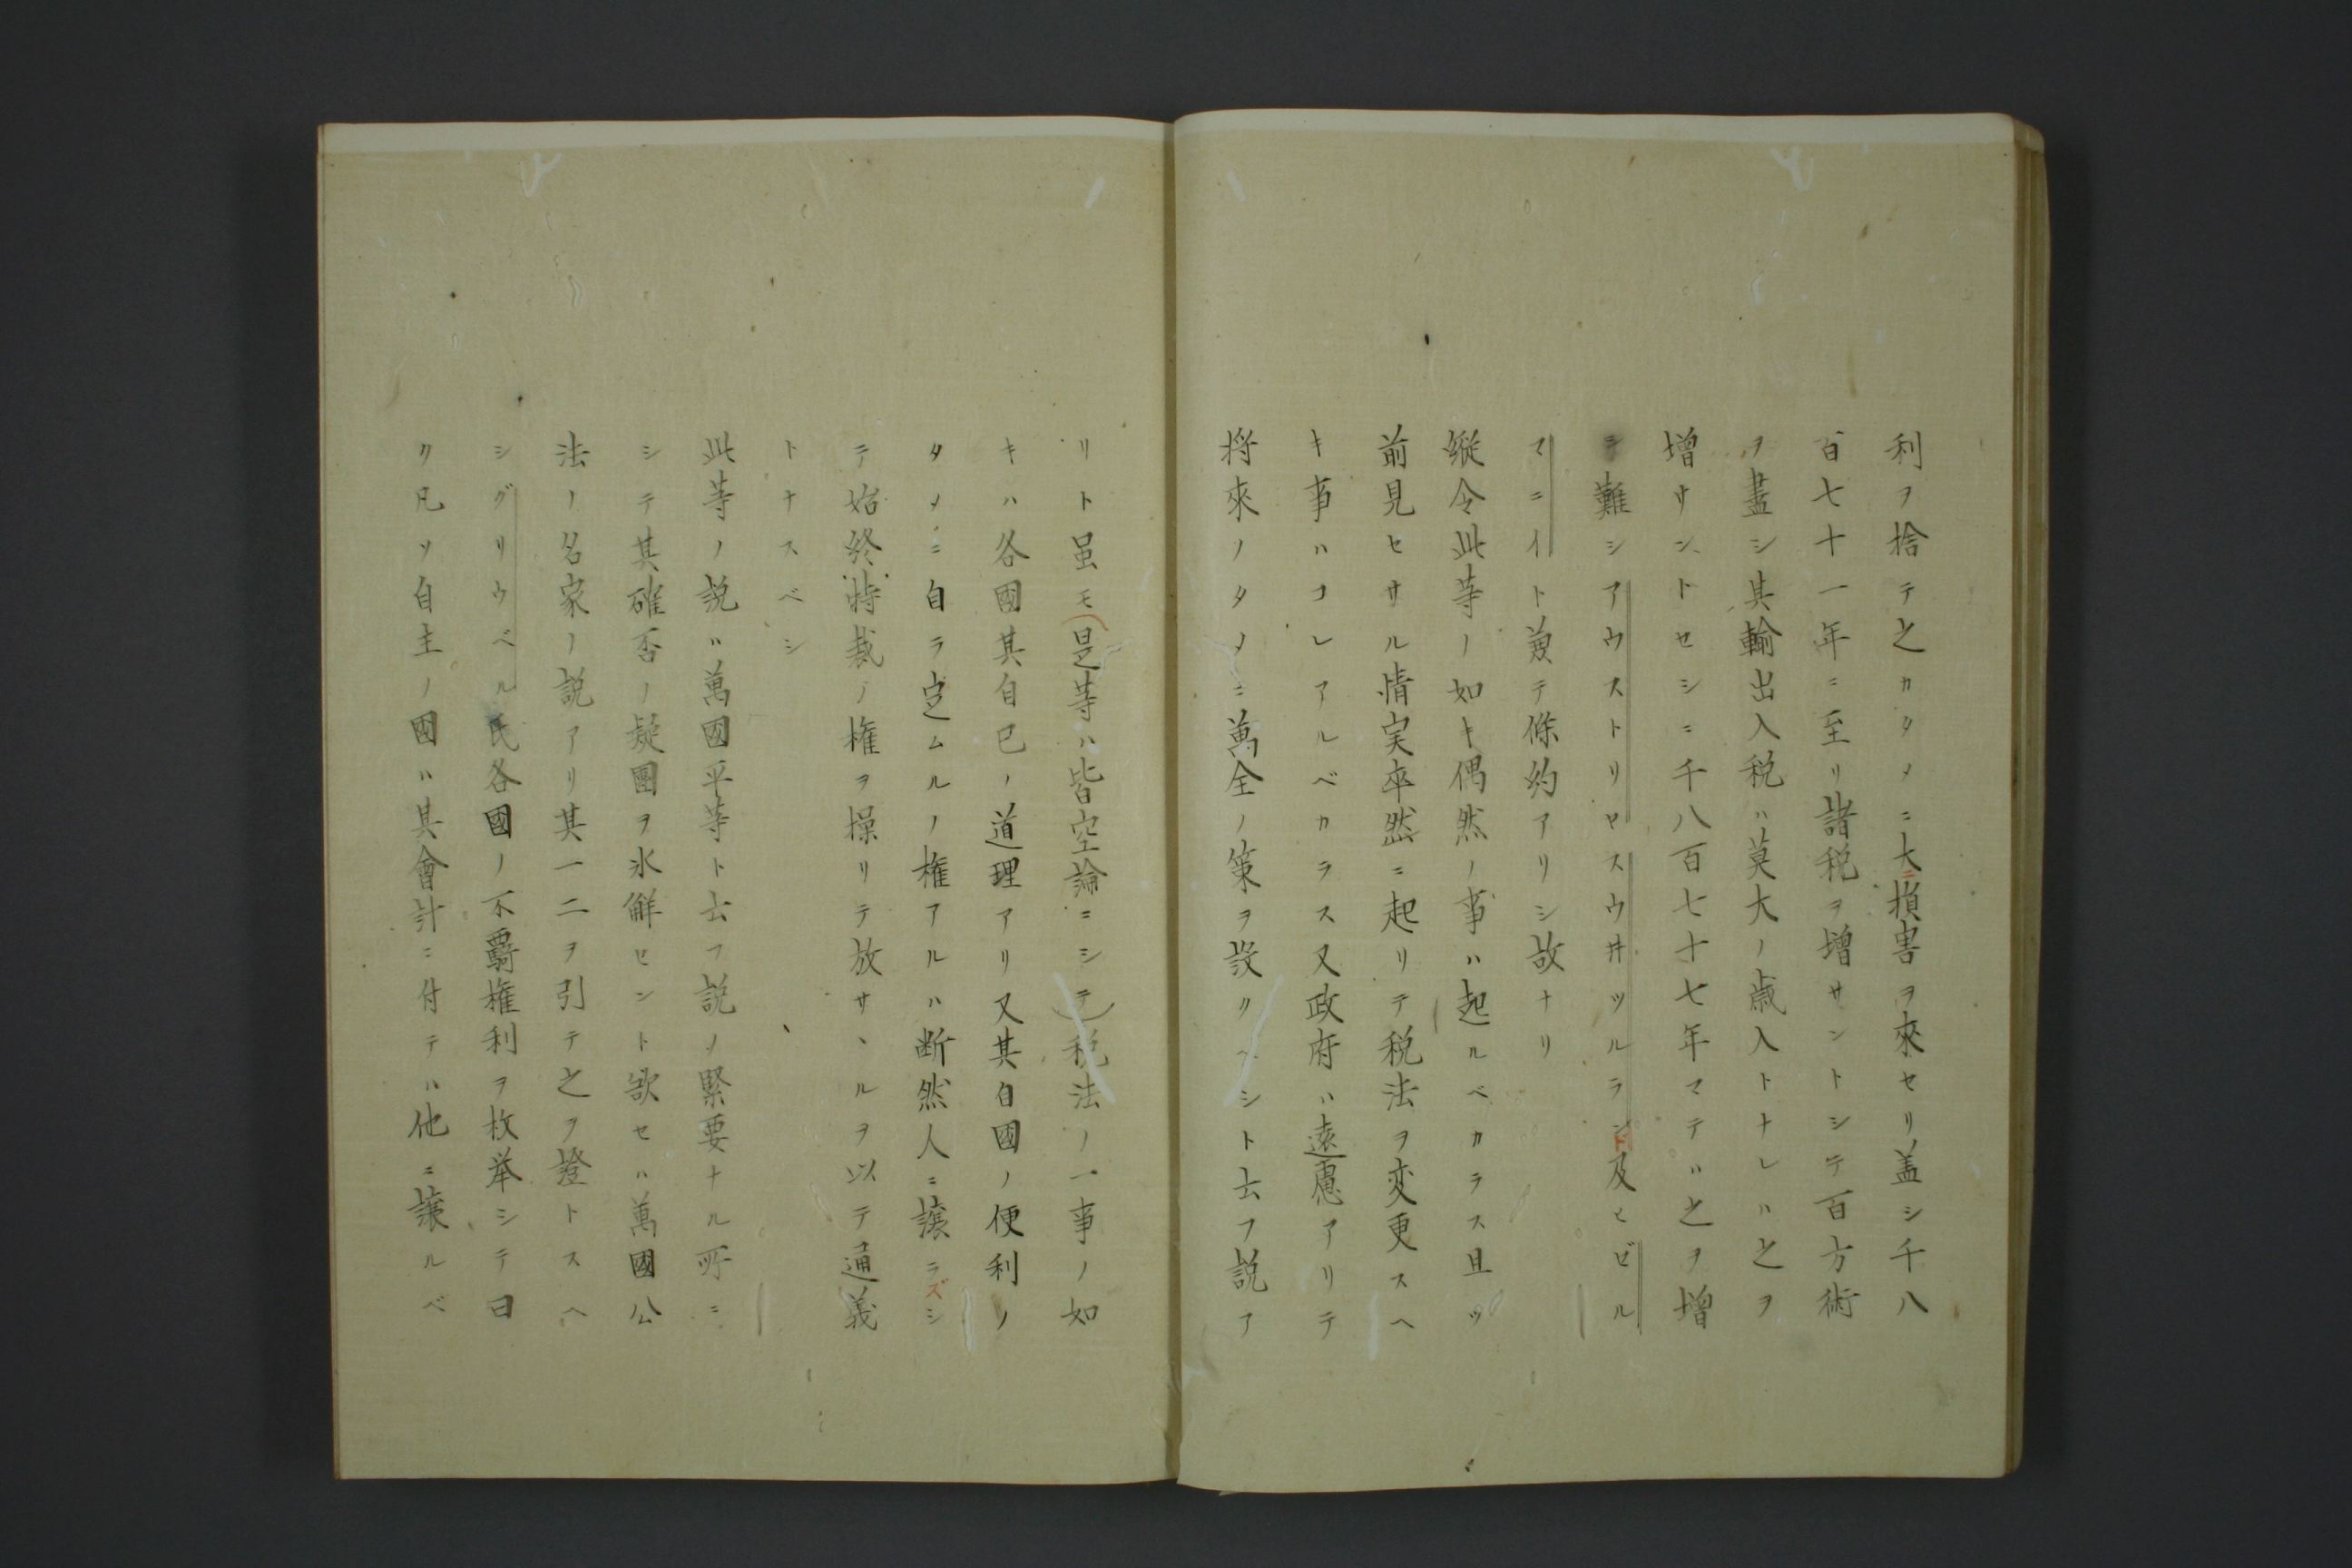 利ヲ捨テ之カタメニ大ニ損害ヲ來セリ盖シ千八
百七十一年ニ至リ諸税ヲ增サントシテ百方術
ヲ盡シ其輸出入税ハ莫大ノ歳入トナレハ之ヲ
增サントセシニ千八百七十七年マテハ之ヲ增
シ難シアウストリヤスウ井ツルラント及ヒゼル
マニイト兼テ條約アリシ故ナリ
縦令此等ノ如キ偶然ノ事ハ起ルベカラス且ツ
前見セサル情実卒然ニ起リテ税法ヲ変更スヘ
キ事ハコレアルベカラス又政府ハ遠慮アリテ
将來ノタメニ萬全ノ策ヲ設クヘシト云フ説ア
リト虽モ是等ハ皆空論ニシテ税法ノ一事ノ如
キハ各國其自已ノ道理アリ又其自國ノ便利ノ
タメニ自ラ定ムルノ権アルハ断然人ニ讓ラズシ
テ始終特裁ノ権ヲ操リテ放サヽルヲ以テ通義
トナスベシ
此等ノ説ハ萬國平等ト云フ説ノ緊要ナル所ニ
シテ其確否ノ疑團ヲ氷解セント欲セハ萬國公
法ノ名家ノ説アリ其一二ヲ引テ之ヲ證トスヘ
シグリウベル氏各國ノ不羈権利ヲ枚举シテ曰
ク凡ソ自主ノ國ハ其會計ニ付テハ他ニ譲ルベ